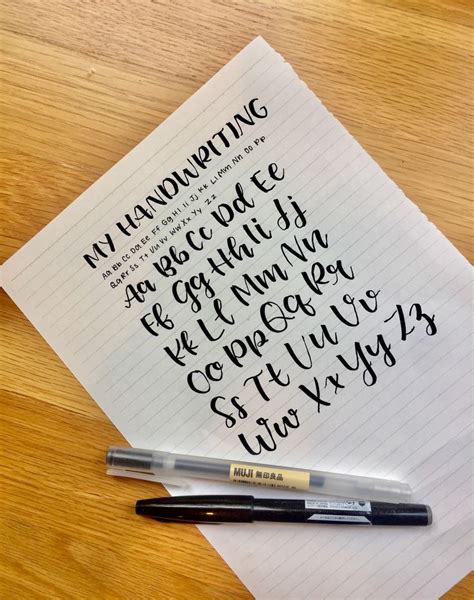 MY HANDWRITING
Aa Bb Cc Dd Ee Ff Gg Hh Ii Jj Kk Ll Mm Nn Oo Pp
Qq Rr Ss Tt Uu Vv Ww Xx Yy Zz
Aa Bb Cc Dd Ee
Ff Gg Hh Ii Jj
Kk Ll Mm Nn
Oo Pp Qq Rr
Ss Tt Uu Vv
Ww Xx Yy Zz
MUJI 無印良品